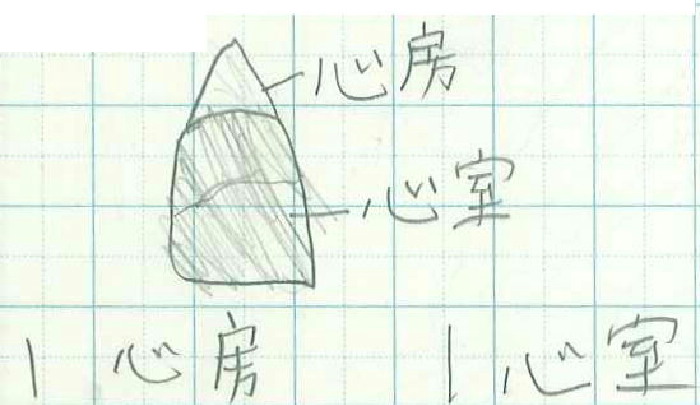 心房
心室
1心房 1心室